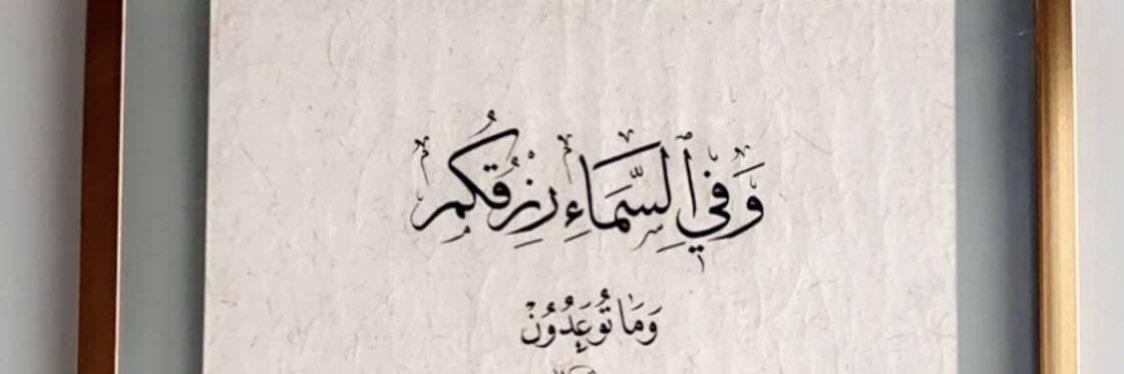 وَفِي ٱلسَّمَاءِ رِزْقُكُمْ
وَمَا تُوعَدُونَ